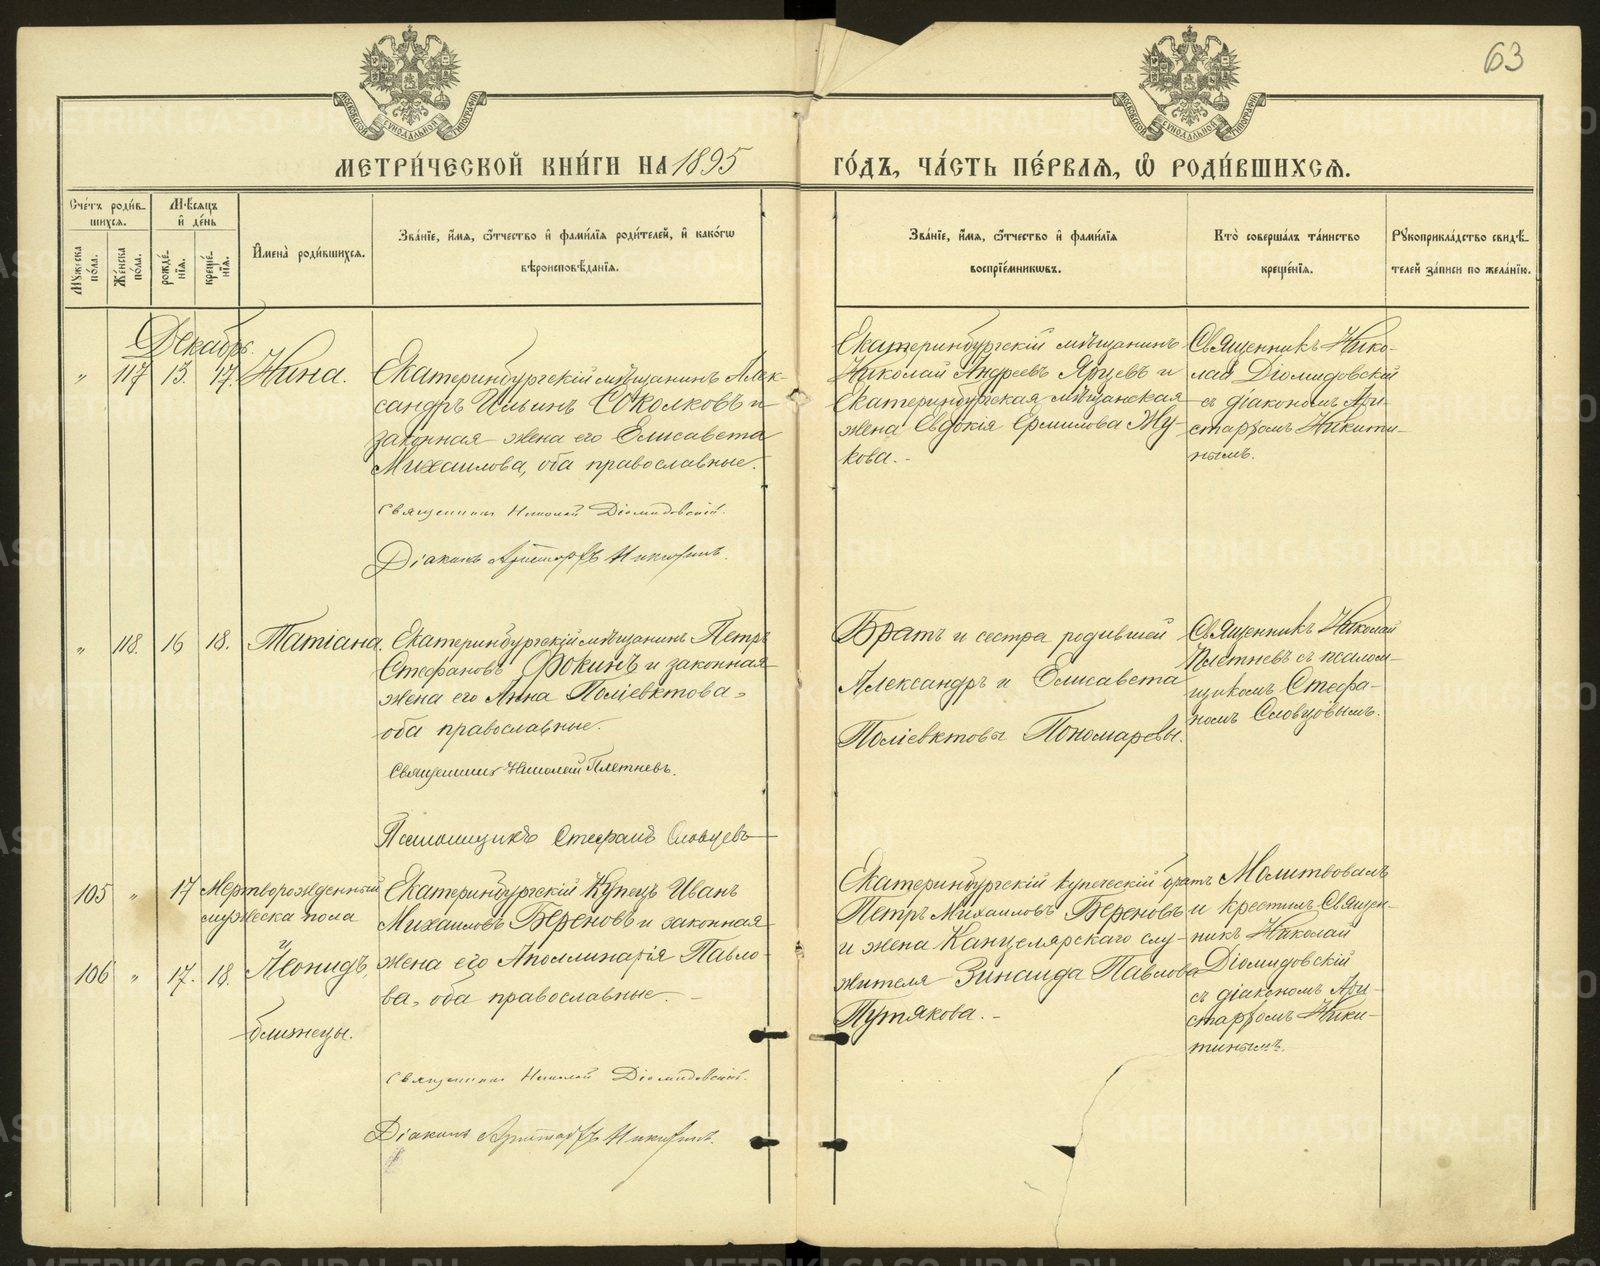 63
МОСКОВСКОЙ СѴНОДАЛЬНОЙ ТИПОГРАФІИ
МОСКОВСКОЙ СѴНОДАЛЬНОЙ ТИПОГРАФІИ
МЕТРИ́ЧЕСКОЙ КНИ́ГИ НА 1895 ГО́ДЪ, ЧА́СТЬ ПЕ́РВАѦ, Ѡ҆ РОДИ́ВШИХСѦ.
Сче́тъ роди́в-
шихся.
Мꙋ́жеска по́ла.
Же́нска по́ла.
Мѣ́сяцъ
и҆ де́нь
рожде́-
нїя.
креще́-
нїя.
И҆мена̀ роди́вшихся.
Зва́нїе, и҆́мя, ѻ҆́тчество и҆ фами́лїя роди́телей, и҆ како́гѡ
вѣроисповѣ́данїя.
Зва́нїе, и҆́мя, ѻ҆́тчество и҆ фами́лїя
воспрїе́мникѡвъ.
Кто̀ соверша́лъ та́инство
креще́нїя.
Рꙋкоприкла́дство свидѣ́-
телей за́писи по жела́нїю.
Декабрь.
„ 117 13. 17. Нина.
Екатеринбургскій мѣщанинъ Алек-
сандръ Ильинъ Соколковъ и
законная жена его Елисавета
Михаилова, оба православные.
Священникъ Николай Діомидовскій.
Діаконъ Аристархъ Никитинъ.
Екатеринбургскій мѣщанинъ
Николай Андреевъ Ярцевъ и
Екатеринбургская мѣщанская
жена Евдокія Ермилова Жу-
кова.-
Священникъ Нико-
лай Діомидовскій
съ діакономъ Ари-
стархомъ Никити-
нымъ.
„ 118. 16 18. Татіана.
Екатеринбургскій мѣщанинъ Петръ
Стефановъ Фокинъ и законная
жена его Анна Поліевктова,
оба православные.
Священникъ Николай Плетневъ.
Псаломщикъ Стефанъ Словцевъ
Братъ и сестра родившей
Александръ и Елисавета
Поліевктовы Пономаревы.
Священникъ Николай
Плетневъ съ псалом-
щикомъ Стефа-
номъ Словцовымъ.
105 „ 17 Мертворожденный
мужеска пола
и
106 „ 17. 18. Леонидъ,
близнецы.
Екатеринбургскій Купецъ Иванъ
Михаиловъ Береновъ и законная
жена его Аполлинарія Павло-
ва, оба православные. -
Священникъ Николай Діомидовскій.
Діаконъ Аристархъ Никитинъ.
Екатеринбургскій купеческій братъ
Петръ Михаиловъ Береновъ
и жена Канцелярскаго слу-
жителя Зинаида Павлова
Путякова. -
Молитвовалъ
и крестилъ Священ-
никъ Николай
Діомидовскій
съ діакономъ Ари-
стархомъ Ники-
тинымъ.
METRIKI.GASO-URAL.RU